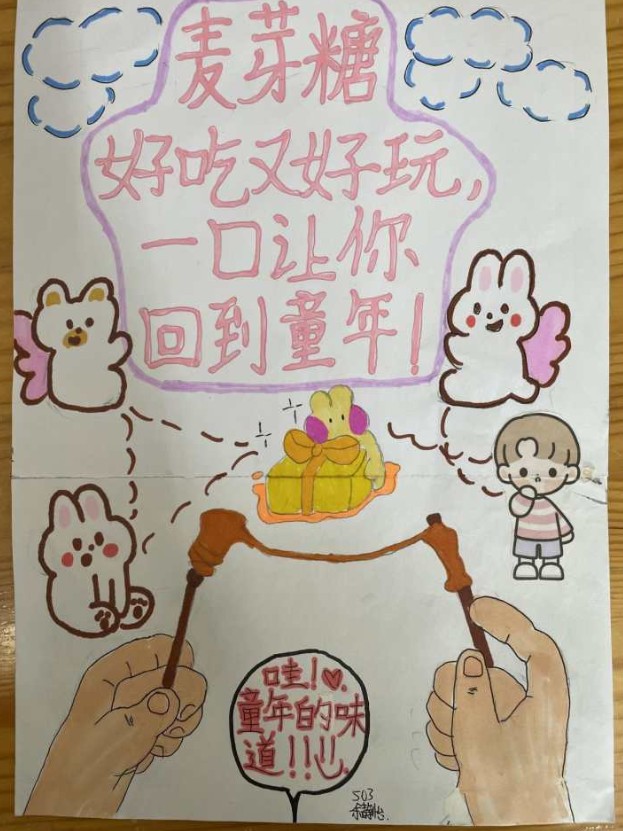 麦芽糖
好吃又好玩,
一口让你
回到童年!
哇!♥.
童年的味
道!!
503